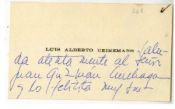 LUIS ALBERTO HEIREMANS salu-
da atentamente al Señor
Juan Guzmán Cruchaga
y lo felicita muy sin-